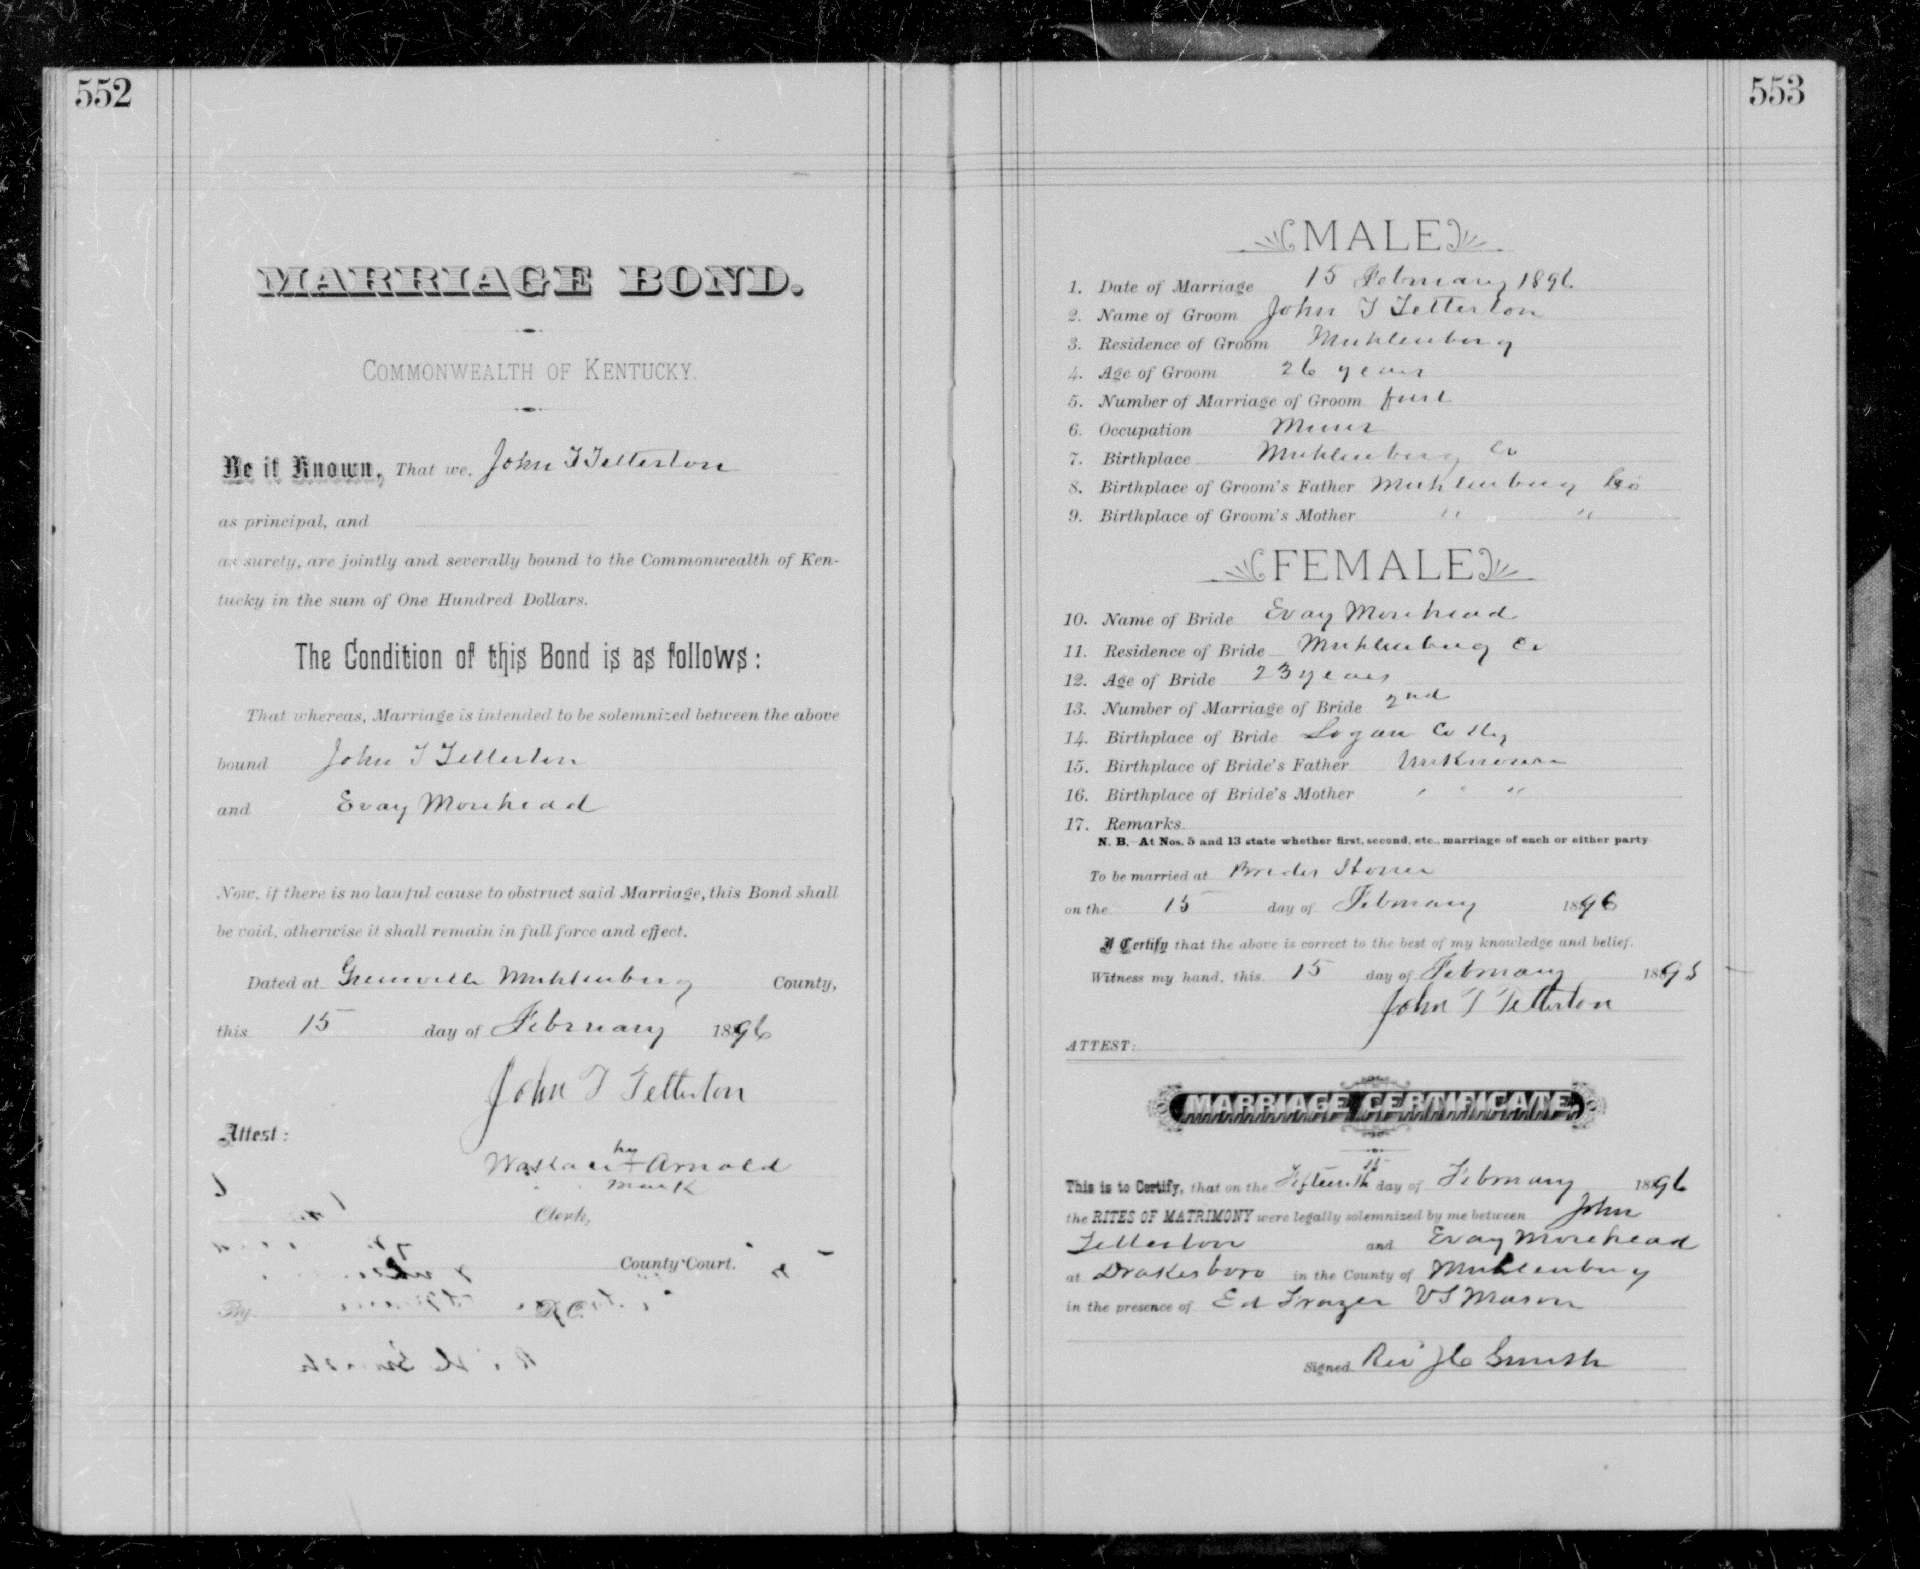 552
MARRIAGE BOND.
COMMONWEALTH OF KENTUCKY.
Be it Known, That we, John T Tetterton
as principal, and
as surety, are jointly and severally bound to the Commonwealth of Ken-
tucky in the sum of One Hundred Dollars.
The Condition of this Bond is as follows:
That whereas, Marriage is intended to be solemnized between the above
bound John T Tetterton
and Evay Morehead
Now, if there is no lawful cause to obstruct said Marriage, this Bond shall
be void, otherwise it shall remain in full force and effect.
Dated at Greenville Muhlenberg County,
this 15 day of February 1896
John T Tetterton
Attest:
his
Wallace + Arnold
mark
Clerk,
County Court.
By
553
MALE
1. Date of Marriage 15 February 1896
2. Name of Groom John T Tetterton
3. Residence of Groom Muhlenberg
4. Age of Groom 26 years
5. Number of Marriage of Groom first
6. Occupation Miner
7. Birthplace Muhlenberg Co
8. Birthplace of Groom's Father Muhlenburg Co
9. Birthplace of Groom's Mother " "
FEMALE
10. Name of Bride Evay Morehead
11. Residence of Bride Muhlenburg Co
12. Age of Bride 23 years
13. Number of Marriage of Bride 2nd
14. Birthplace of Bride Logan Co Ky
15. Birthplace of Bride's Father Unknown
16. Birthplace of Bride's Mother " "
17. Remarks
N. B.—At Nos. 5 and 13 state whether first, second, etc., marriage of each or either party
To be married at Brides House
on the 15 day of February 1896
I Certify that the above is correct to the best of my knowledge and belief.
Witness my hand, this 15 day of February 1895
John T Tetterton
ATTEST:
MARRIAGE CERTIFICATE.
15
This is to Certify, that on the Fifteenth day of February 1896
the RITES OF MATRIMONY were legally solemnized by me between John
Tetterton and Evay Morehead
at Drakesboro in the County of Muhlenburg
in the presence of Ed Frazer V S Mason
Signed Rev J C Smith